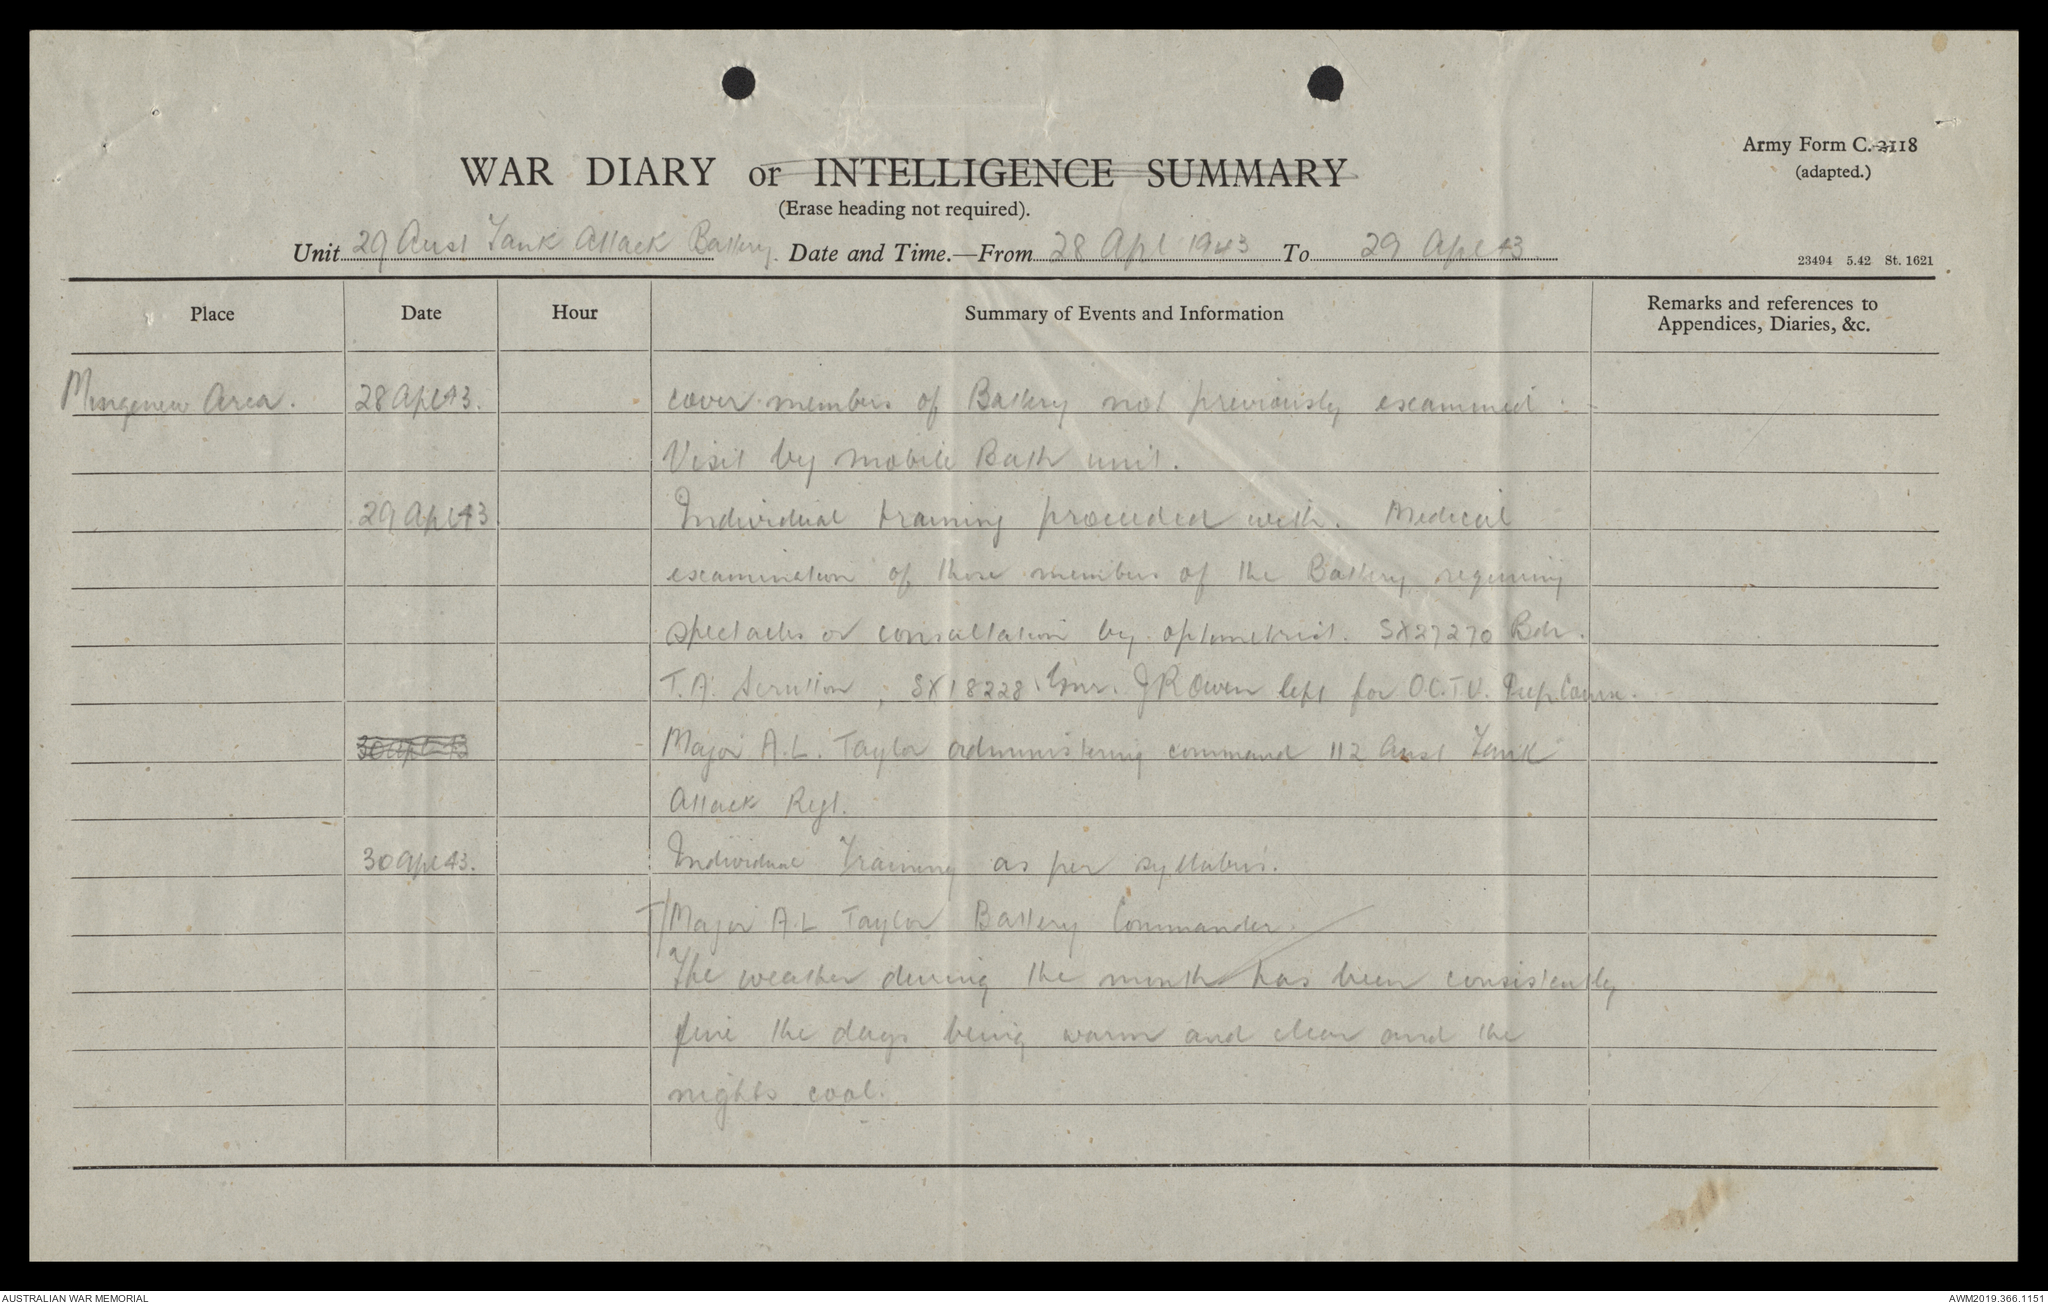 Army Form C. 2118
(adapted.)
WAR DIARY or INTELLIGENCE SUMMARY
(Erase heading not required).
Unit 29 Aust Tank Attack Battery. Date and Time.—From 28 Apl 1943 To 29 Apl 43.
23494 5.42 St. 1621
Place Date Hour Summary of Events and Information Remarks and references to
Appendices, Diaries, &c.
Mingenew Area. 28 Apl 43. cover members of Battery not previously examined.
Visit by mobile Bath unit.
29 Apl 43 Individual training proceeded with. Medical
examination of those members of the Battery requiring
spectacles or consultation by optometrist. SX27270 Bdr.
T.A. Scrutton, SX18228 Gnr. J R Owen left for O.C.T.U. Prep Course.
30 Apl 43 Major A.L. Taylor administering command 112 Aust Tank
Attack Regt.
30 Apl 43. Individual Training as per syllabus.
T/Major A.L Taylor Battery Commander.
The weather during the month has been consistently
fine the days being warm and clear and the
nights cool.
AUSTRALIAN WAR MEMORIAL AWM2019.366.1151